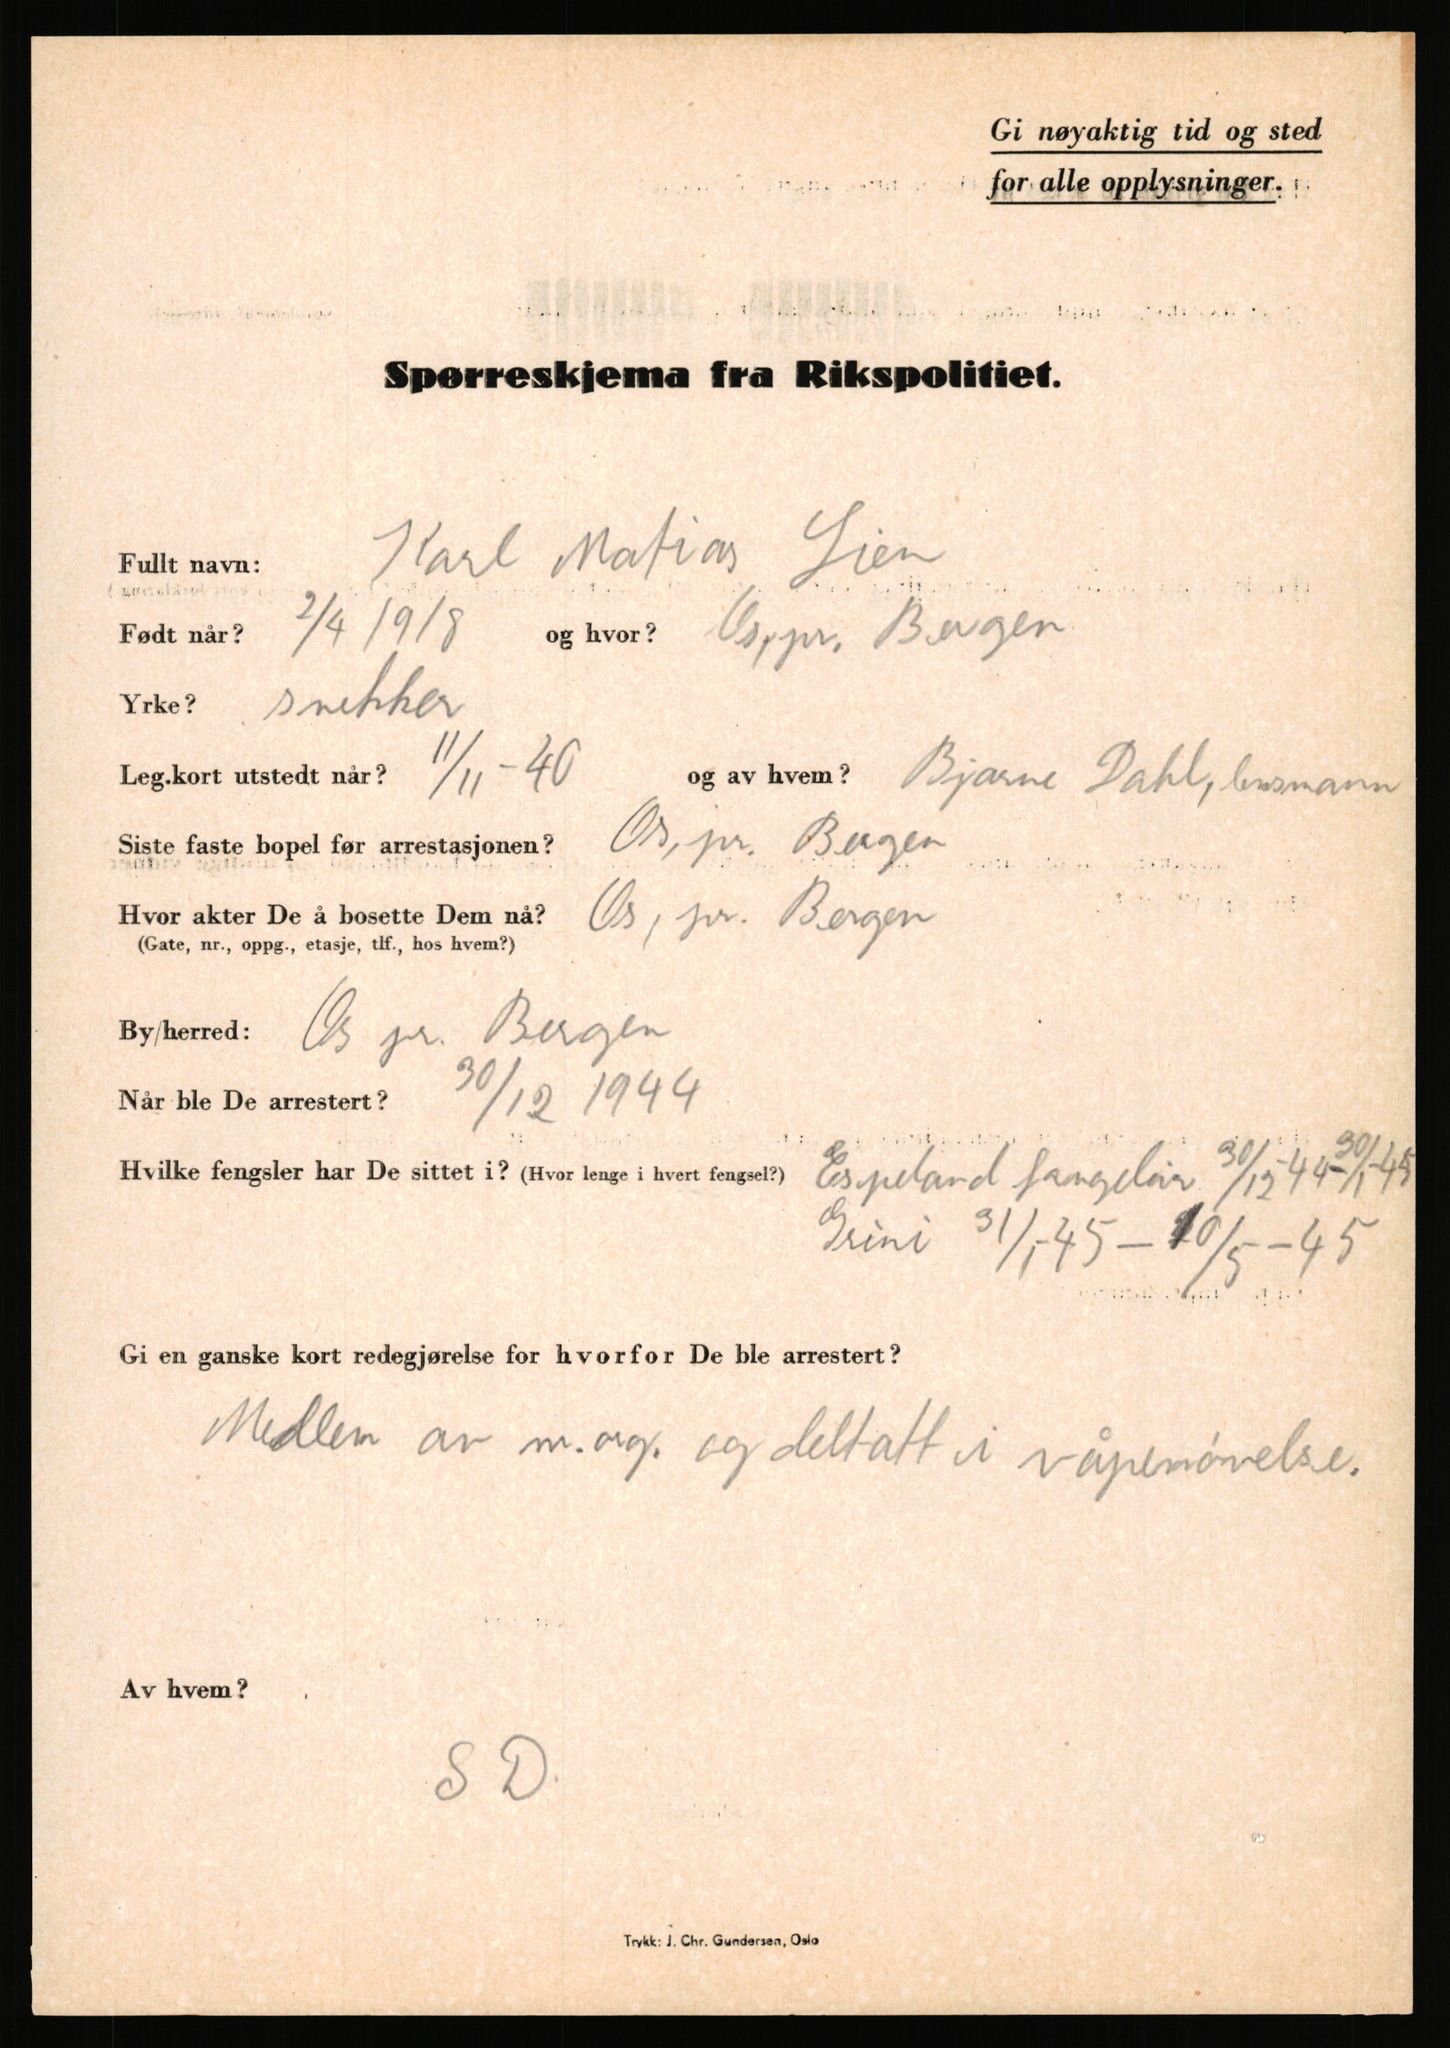 Gi nøyaktig tid og sted
for alle opplysninger.
Spørreskjema fra Rikspolitiet.
Fullt navn: Karl Matias Lien
Født når? 2/4 1918 og hvor? Os, pr. Bergen
Yrke? snekker
Leg.kort utstedt når? 11/11-40 og av hvem? Bjarne Dahl, lensmann
Siste faste bopel før arrestasjonen? Os, pr. Bergen
Hvor akter De å bosette Dem nå? Os, pr. Bergen
(Gate, nr., oppg., etasje, tlf., hos hvem?)
By/herred: Os pr. Bergen
Når ble De arrestert? 30/12 1944
Hvilke fengsler har De sittet i? (Hvor lenge i hvert fengsel?) Espeland fangeleir 30/12-44-30/1-45
Grini 31/1-45 — 10/5-45
Gi en ganske kort redegjørelse for hvorfor De ble arrestert?
Medlem av m.org. og deltatt i våpenøvelse.
Av hvem?
S D.
Trykk: J. Chr. Gundersen, Oslo